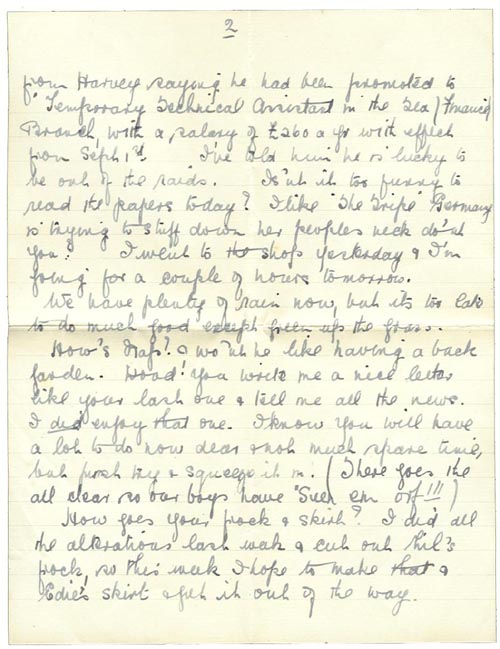 2
from Harvey saying he had been promoted to
"Temporary Technical Assistant in the Sea (Finance)
Branch, with a salary of £260 a yr with effect
from Sept 1st. I've told him he is lucky to
be out of the raids. Isn't it too funny to
read the papers today? I like "The Tripe Germany
is trying to stuff down her peoples neck do'nt
you? I went to the shop yesterday & I'm
going for a couple of hours tomorrow.
We have plenty of rain now, but its too late
to do much good except green up the grass.
How's & wo'nt he like having a back
garden. You write me a nice letter
like your last one & tell me all the news.
I did enjoy that one. I know you will have
a lot to do now dear & not much spare time,
but just try & squeeze it in. (There goes the
all clear so our boys have "Seen em off"!!!)
How goes your frock & skirt? I did all
the alterations last week & cut out Phil's
frock, so this week I hope to make that &
Edie's skirt & get it out of the way.